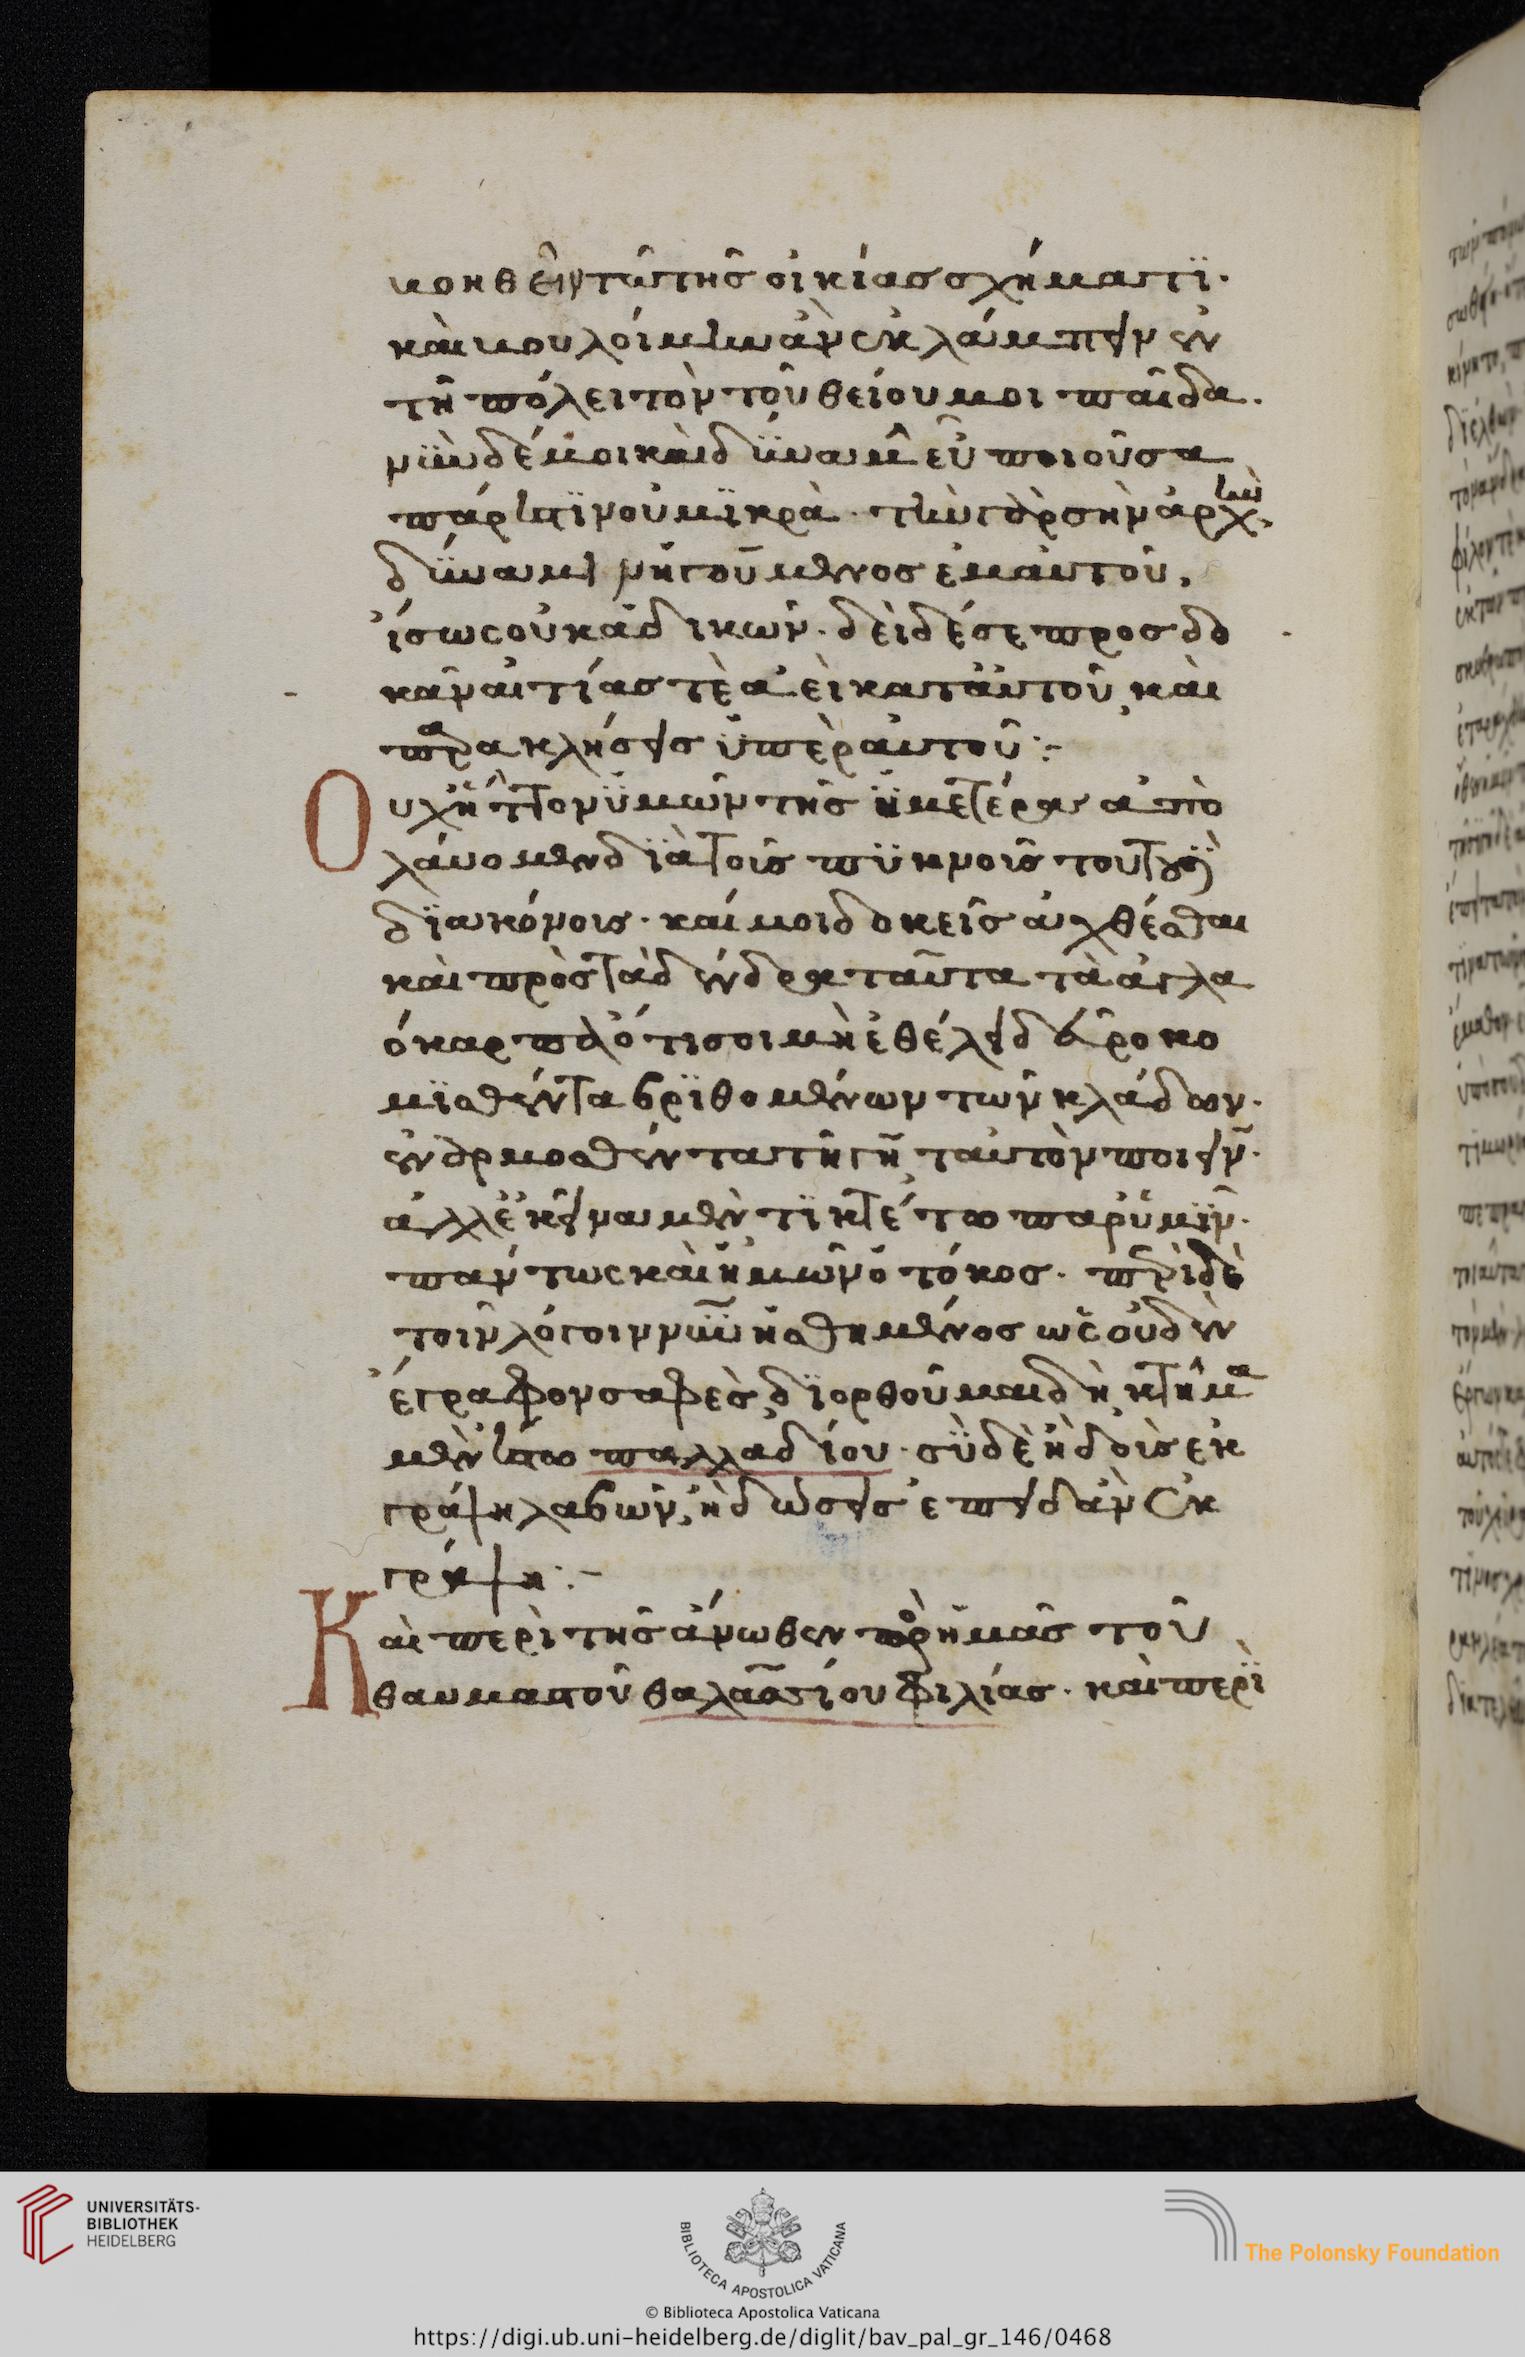 μονηθεῖη τῶ τῆς οἰκίας σχήματϊ.
καὶ βουλοίμην ἂν ἐκλάμπειν ἐν
τῆ πόλει τὸν τοῦ θείου μοι παῖδα.
νῦν δέ μοι καὶ δύναμις εὖ ποιοῦσα
πάρεστϊν οὐ μϊκρὰ. τὴν γὰρ σὴν ἀρχὴν
δύναμιν ἡγούμενος ἐμαυτοῦ,
ἴσως οὐκ ἀδικῶν. δεῖ δέ σε προσδο
κᾶν αἰτίας τὲ ἀεὶ κατ' αὐτοῦ, καὶ
παρακλήσεις ὑπὲρ αὐτοῦ:-
Οὐχ ἧττον ὑμῶν τῆς ἡμετέρας ἀπο
λαύομεν διὰ τοῖς πυκνοῖς τουτωῒ
διακόνοις. καί μοι δοκεῖς ἄχθεσθαι
καὶ πρὸς τὰ δένδρα ταῦτα τὰ ἀγλα
όκαρπα ὅτι σοι μὴ ἐθέλει δεῦρο κο
μισθέντα βριθομένων τῶν κλάδων.
ἐναρμοσθέντα τῆ γῆ ταυτὸν ποιεῖν.
ἀλλ' ἐκεῖνα μὲν τικτέτω παρ' ὑμῖν.
πάντως καὶ ἡμῶν ὁ τόκος. περὶ δὲ
τοῖν λόγοιν νῦν ᾐσθημένος ὡς οὐδὲν
ἔγραφον σαφὲς, διορθοῦμαι δὴ κτῆμα
μὲν ἔστω παλλαδίου. σὺ δὲ ἢ δοῖς ἐκ
γράψη λαβὼν, ἢ δώσεις ἐπειδὰν ἐκ
γράψη:-
Καὶ περὶ τῆς ἄνωθεν πρὸς ἡμᾶς τοῦ
θαυμαστοῦ θαλασσίου φιλίας. καὶ περὶ
UNIVERSITÄTS-
BIBLIOTHEK
HEIDELBERG
BIBLIOTECA APOSTOLICA VATICANA
The Polonsky Foundation
© Biblioteca Apostolica Vaticana
https://digi.ub.uni-heidelberg.de/diglit/bav_pal_gr_146/0468